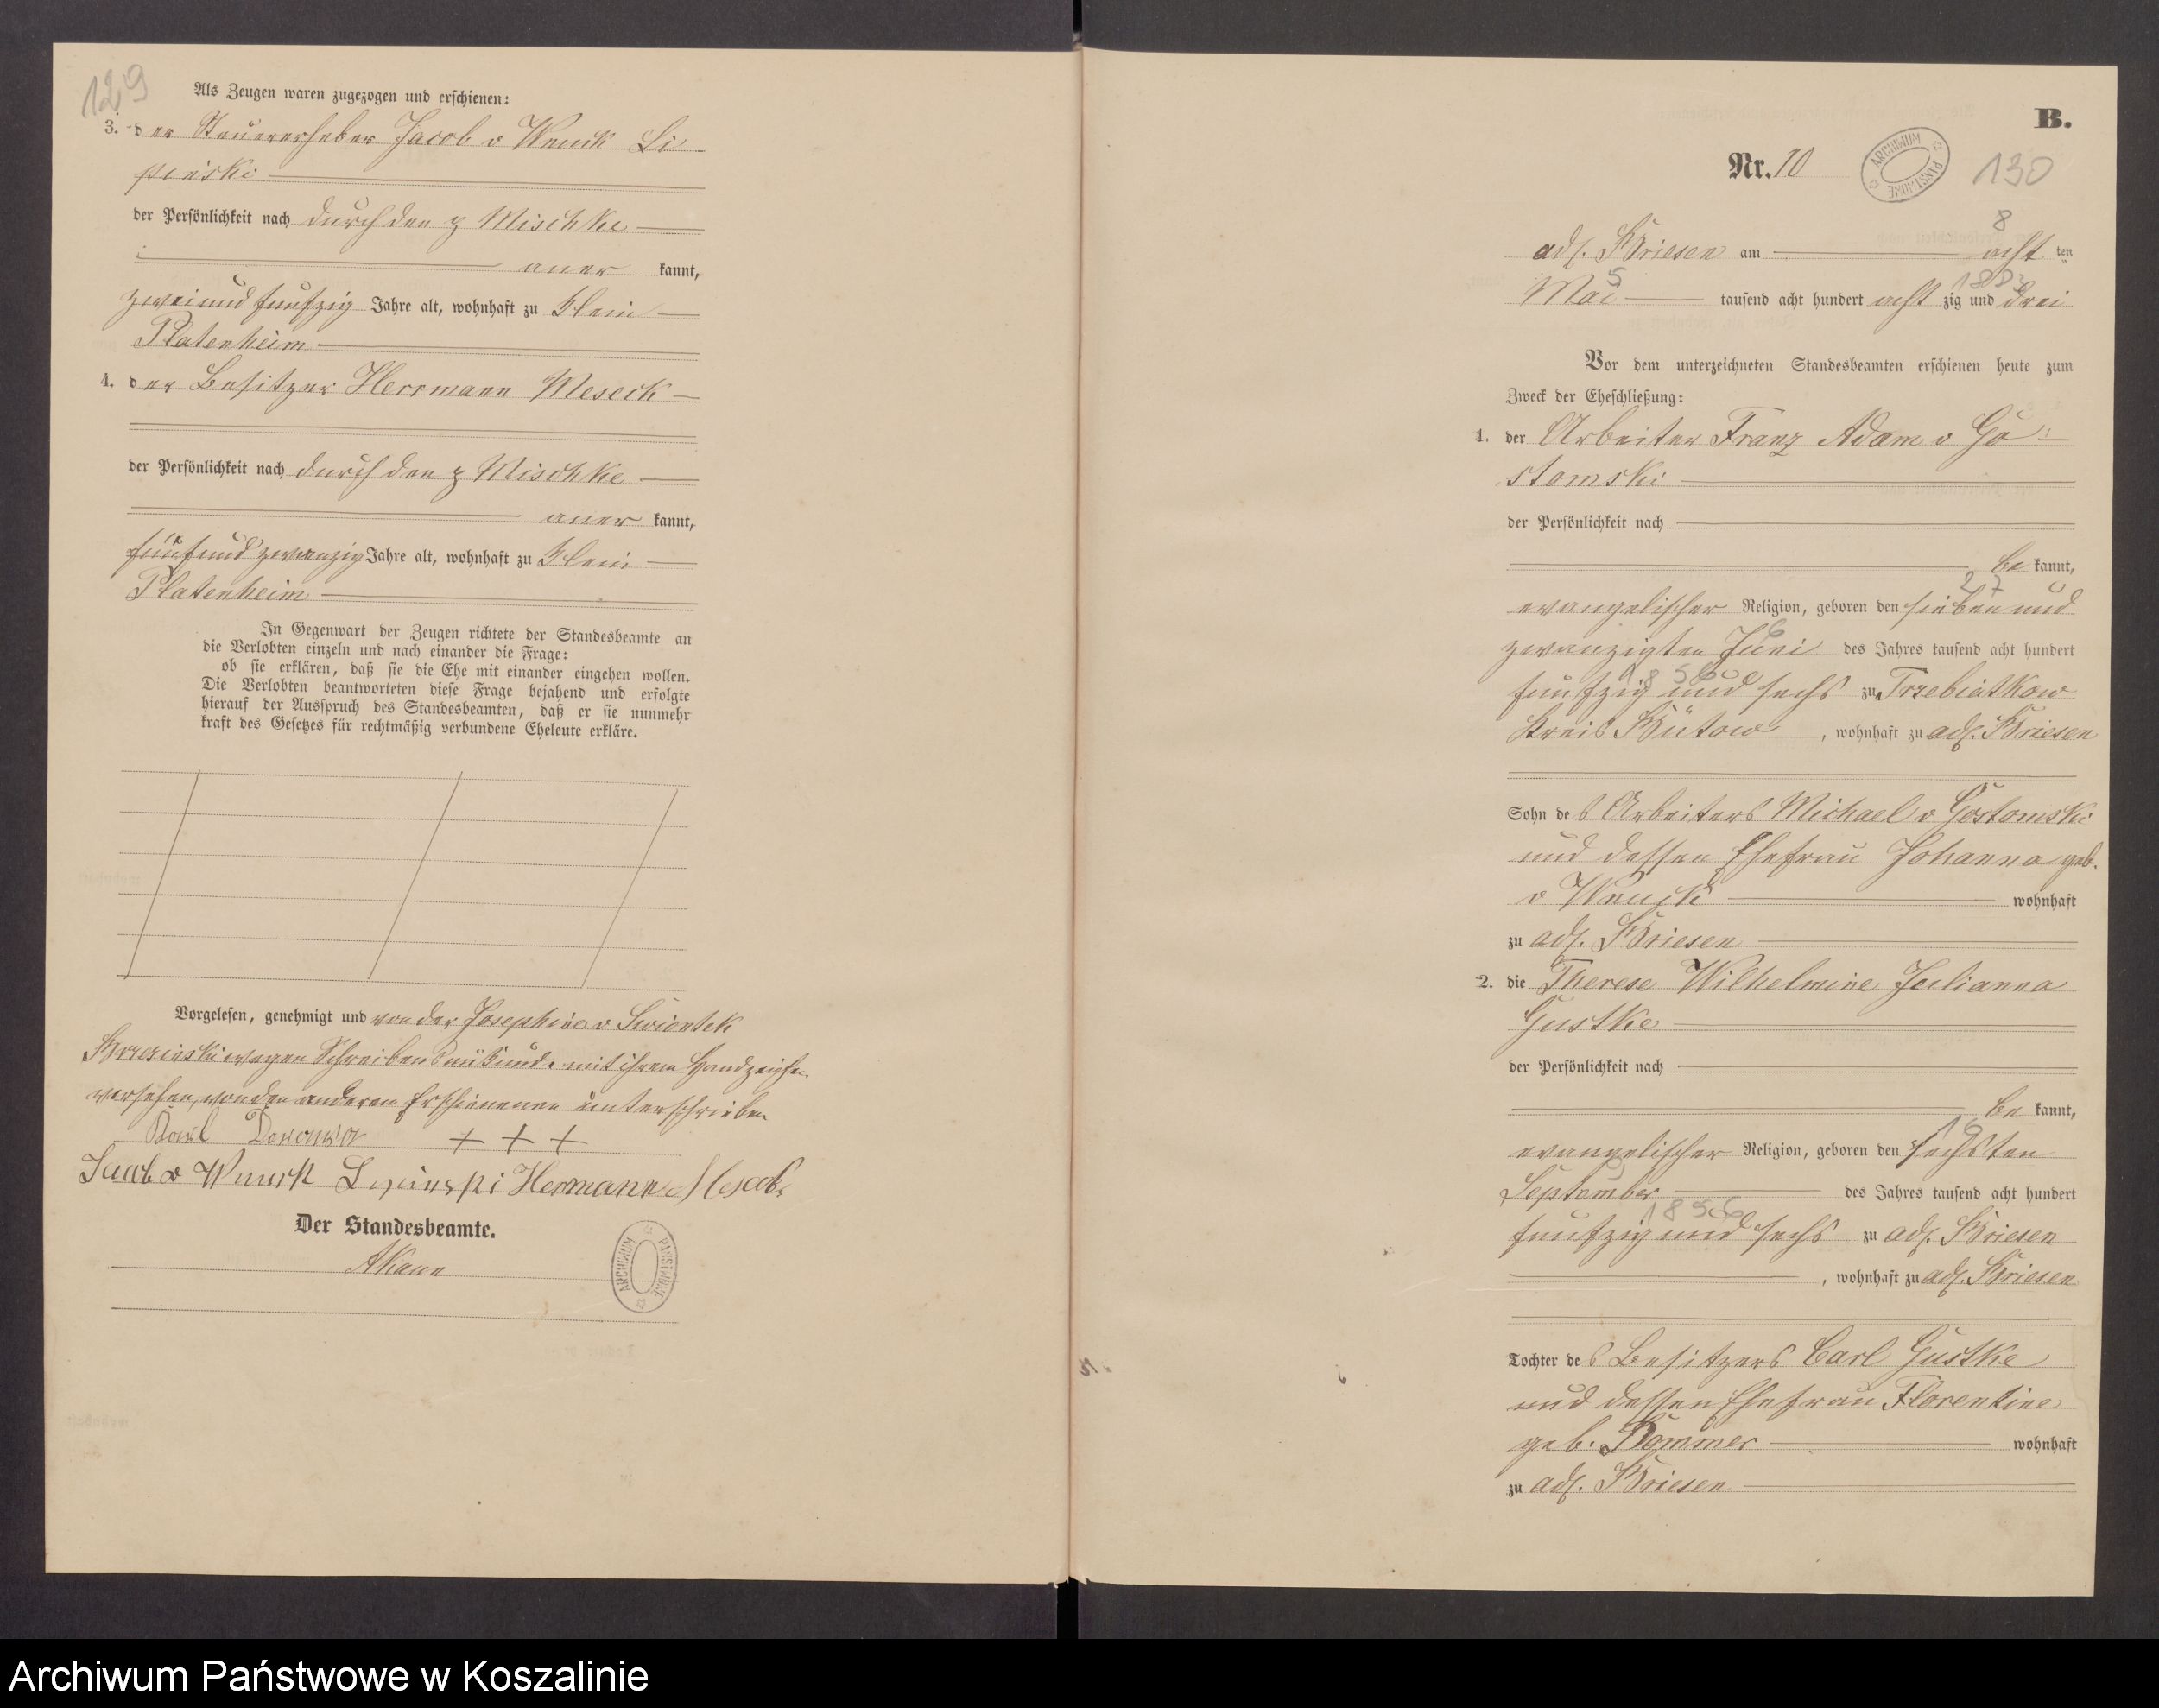 129
Als Zeugen waren zugezogen und erschienen:
3. der Steuererheber Jacob v Wenck Li
pinski
der Persönlichkeit nach durch den p Mischke
aner kannt,
zweiundfünfzig Jahre alt, wohnhaft zu Klein
Platenheim
4. der Besitzer Herrmann Meseck
der Persönlichkeit nach durch den p Mischke
aner kannt,
fünfundzwanzig Jahre alt, wohnhaft zu Klein
Platenheim
In Gegenwart der Zeugen richtete der Standesbeamte an
die Verlobten einzeln und nach einander die Frage:
ob sie erklären, daß sie die Ehe mit einander eingehen wollen.
Die Verlobten beantworteten diese Frage bejahend und erfolgte
hierauf der Ausspruch des Standesbeamten, daß er sie nunmehr
kraft des Gesetzes für rechtmäßig verbundene Eheleute erkläre.
Vorgelesen, genehmigt und von der Josephine v
wegen Schreibensunkunde mit ihrem Handzeichen
versehen, von den anderen Erschienenen unterschrieben
Karl + + +
Jacob v Wenck Lipinski Hermann Meseck
Der Standesbeamte.
ARCHIWUM PAŃSTWOWE
B.
Nr. 10
ARCHIWUM PAŃSTWOWE
130
8
adl. Briesen am acht ten
5 1883
Mai tausend acht hundert acht zig und drei
Vor dem unterzeichneten Standesbeamten erschienen heute zum
Zweck der Eheschließung:
1. der Arbeiter Franz Adam v Go
stomski
der Persönlichkeit nach
be kannt,
27
evangelischer Religion, geboren den sieben und
6
zwanzigten Juni des Jahres tausend acht hundert
1856
fünfzig und sechs zu Trzebiatkow
Kreis Bütow, wohnhaft zu adl. Briesen
Sohn des Arbeiters Michael v Gostomski
und dessen Ehefrau Johanna geb.
v Wenck wohnhaft
zu adl. Briesen
2. die Therese Wilhelmine Julianna
Gustke
der Persönlichkeit nach
be kannt,
evangelischer Religion, geboren den sechsten
September des Jahres tausend acht hundert
1856
fünfzig und sechs zu adl. Briesen
, wohnhaft zu adl. Briesen
Tochter des Besitzers Carl Gustke
und dessen Ehefrau Florentine
geb. Pommer wohnhaft
zu adl. Briesen
Archiwum Państwowe w Koszalinie